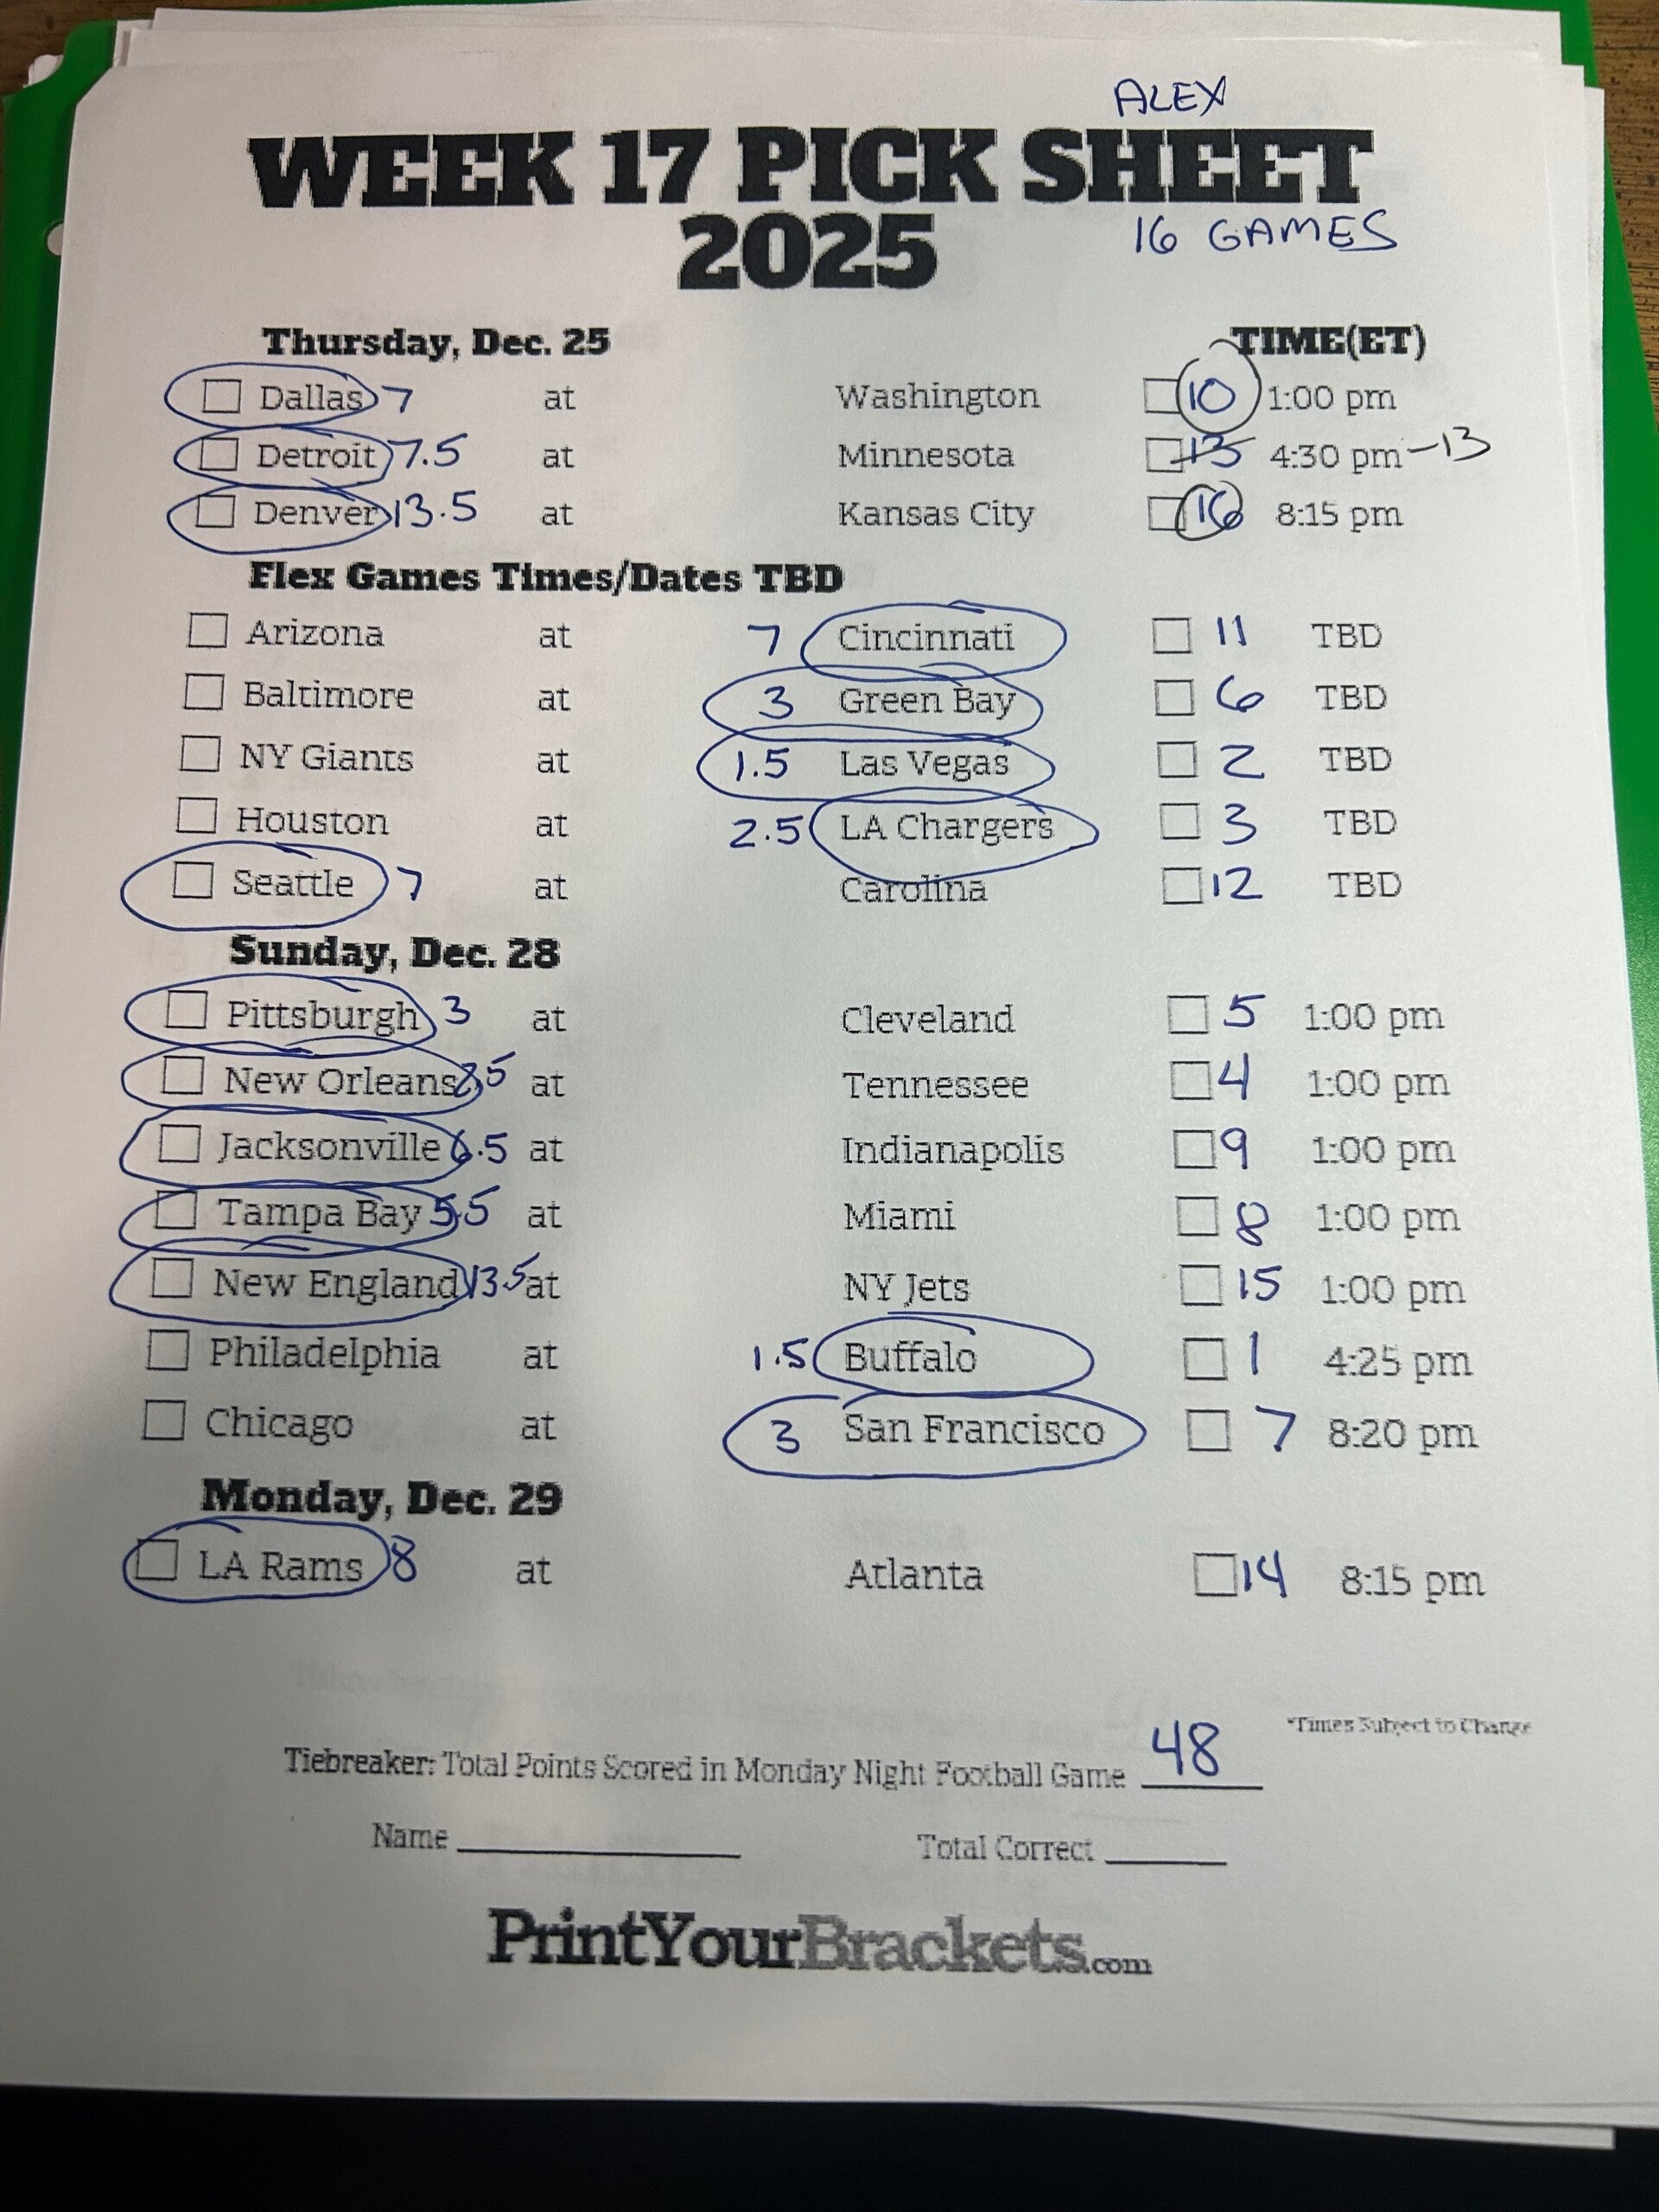 ALEX
WEEK 17 PICK SHEET
2025
16 GAMES
Thursday, Dec. 25 TIME(ET)
Dallas 7 at Washington 10 1:00 pm
Detroit 7.5 at Minnesota 13 4:30 pm -13
Denver 13.5 at Kansas City 16 8:15 pm
Flex Games Times/Dates TBD
Arizona at 7 Cincinnati 11 TBD
Baltimore at 3 Green Bay 6 TBD
NY Giants at 1.5 Las Vegas 2 TBD
Houston at 2.5 LA Chargers 3 TBD
Seattle 7 at Carolina 12 TBD
Sunday, Dec. 28
Pittsburgh 3 at Cleveland 5 1:00 pm
New Orleans 2.5 at Tennessee 4 1:00 pm
Jacksonville 6.5 at Indianapolis 9 1:00 pm
Tampa Bay 5.5 at Miami 8 1:00 pm
New England 13.5 at NY Jets 15 1:00 pm
Philadelphia at 1.5 Buffalo 1 4:25 pm
Chicago at 3 San Francisco 7 8:20 pm
Monday, Dec. 29
LA Rams 8 at Atlanta 14 8:15 pm
*Times Subject to Change
Tiebreaker: Total Points Scored in Monday Night Football Game 48
Name Total Correct
PrintYourBrackets.com